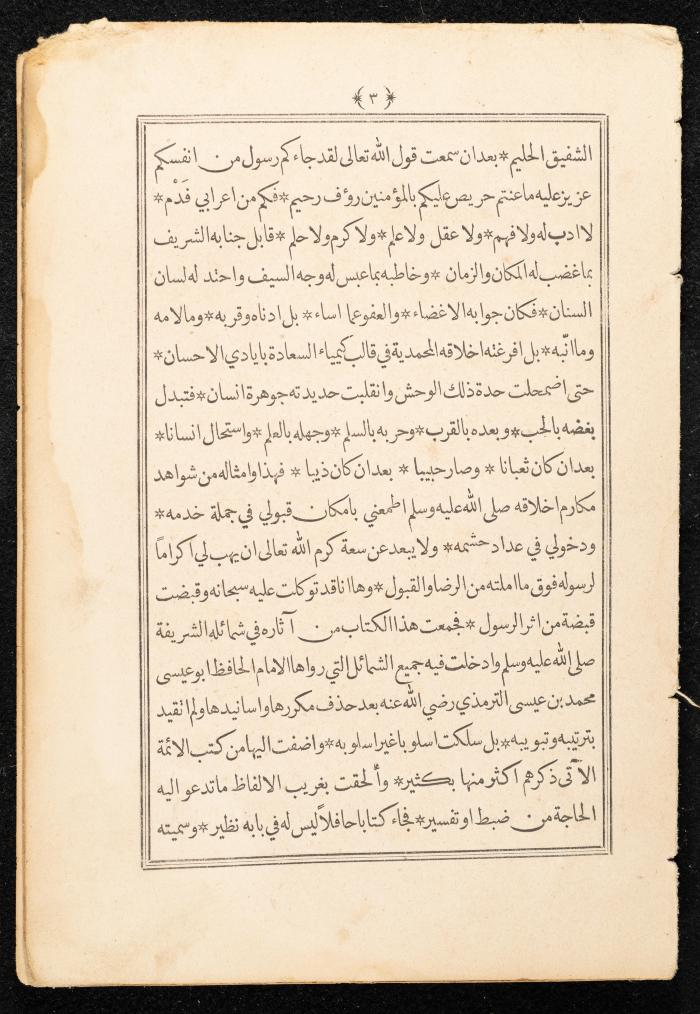 ٣
الشفيق الحليم * بعد ان سمعت قول الله تعالى لقد جاءكم رسول من انفسكم
عزيز عليه ماعنتم حريص عليكم بالمؤمنين رؤف رحيم * فكم من اعرابي فَدْم *
لا ادب له ولا فهم * ولا عقل ولا علم * ولا كرم ولا حلم * قابل جنابه الشريف
بما غضب له المكان والزمان * وخاطبه بما عبس له وجه السيف واحتد له لسان
السنان * فكان جوابه الاغضاء * والعفو عما اساء * بل ادناه وقربه * وما لامه
وما انّبه * بل افرغته اخلاقه المحمدية في قالب كيمياء السعادة بايادي الاحسان *
حتى اضمحلت حدة ذلك الوحش وانقلبت حديدته جوهرة انسان * فتبدل
بغضه بالحب * وبعده بالقرب * وحربه بالسلم * وجهله بالعلم * واستحال انسانا *
بعد ان كان ثعبانا * وصار حبيبا * بعد ان كان ذيبا * فهذا وامثاله من شواهد
مكارم اخلاقه صلى الله عليه وسلم اطمعني بامكان قبولي في جملة خدمه *
ودخولي في عداد حشمه * ولا يبعد عن سعة كرم الله تعالى ان يهب لي اكراماً
لرسوله فوق ما املته من الرضا والقبول * وها انا قد توكلت عليه سبحانه وقبضت
قبضة من اثر الرسول * فجمعت هذا الكتاب من آثاره في شمائله الشريفة
صلى الله عليه وسلم وادخلت فيه جميع الشمائل التي رواها الامام الحافظ ابو عيسى
محمد بن عيسى الترمذي رضي الله عنه بعد حذف مكررها واسانيدها ولم اتقيد
بترتيبه وتبويبه * بل سلكت اسلوبا غير اسلوبه * واضفت اليها من كتب الائمة
الآتى ذكرهم اكثر منها بكثير * وألحقت بغريب الالفاظ ما تدعو اليه
الحاجة من ضبط او تفسير * فجاء كتابا حافلاً ليس له في بابه نظير * وسميته